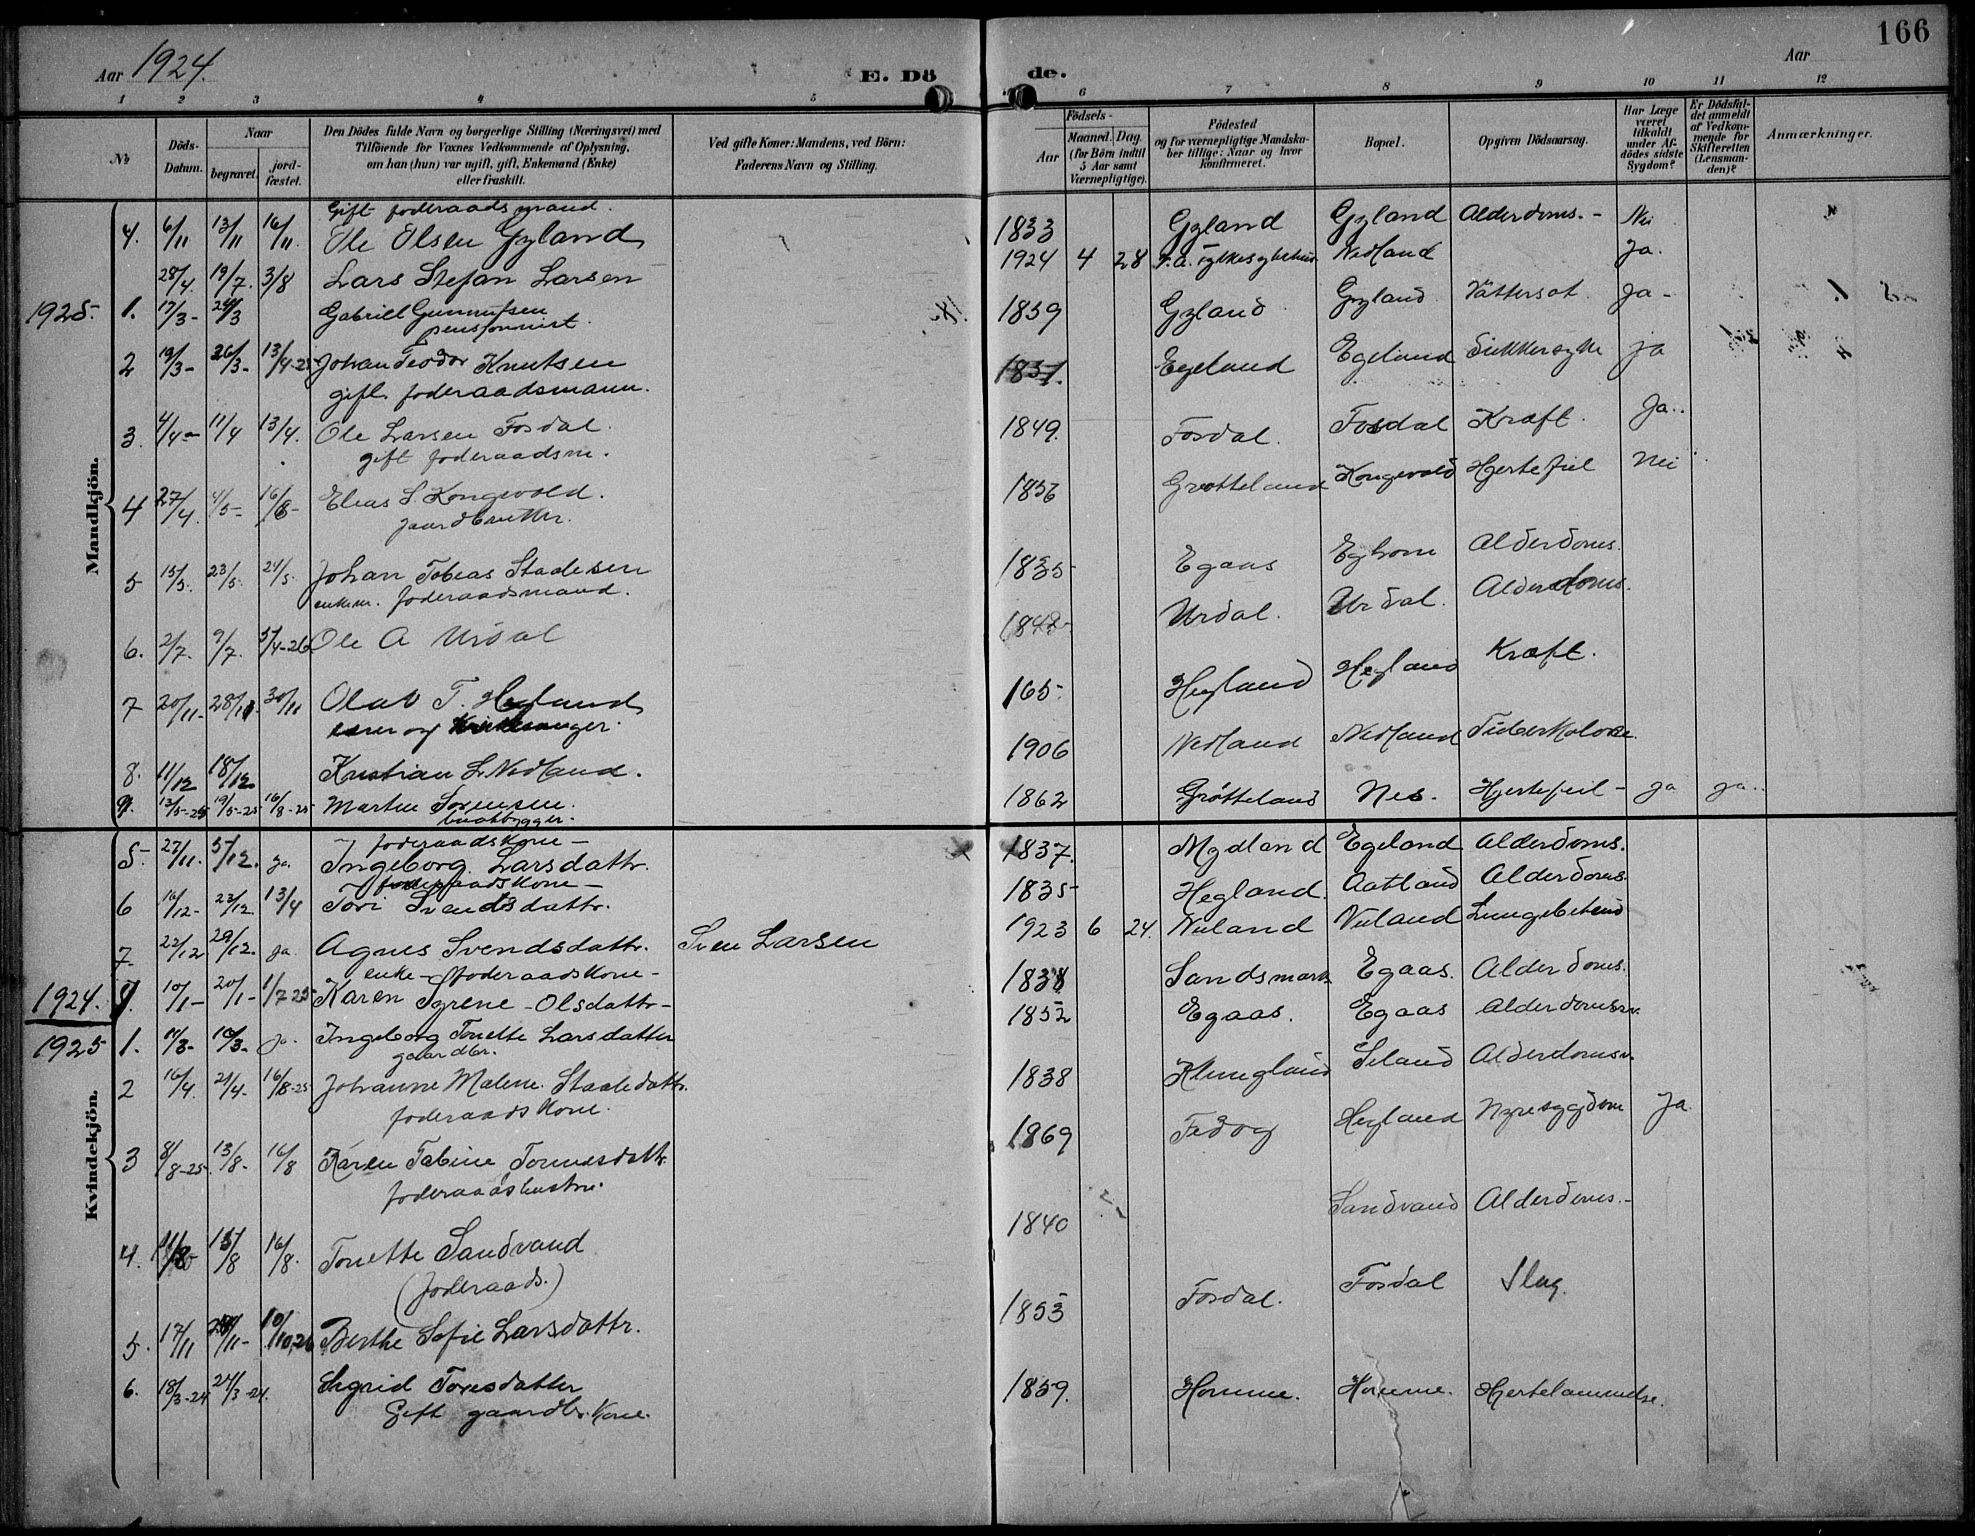 166
Aar 1924.
E. Dö de.
Aar
1 2 3 4 5 6 7 8 9 10 11 12
No
Döds-Datum.
Naar
begravet.
jord-fæstet.
Den Dödes fulde Navn og borgerlige Stilling (Næringsvei) med
Tilföiende for Voxnes Vedkommende af Oplysning,
om han (hun) var ugift, gift, Enkemand (Enke)
eller fraskilt.
Ved gifte Koner: Mandens, ved Börn:
Faderens Navn og Stilling.
Födsels-
Aar
Maaned. Dag.
(for Börn indtil
5 Aar samt
Værnepligtige).
Födested
og for værnepligtige Mandska-
ber tillige: Naar og hvor
konfirmeret.
Bopæl.
Opgiven Dödsaarsag.
Har Læge
været
tilkaldt
under Af-
dödes sidste
Sygdom?
Er Dödsfal-
det anmeldt
af Vedkom-
mende for
Skifteretten
(Lensman-
den)?
Anmærkninger.
Mandkjön.
Gift foderaadsmand.
4. 6/11 13/11 16/11 Ole Olsen Gyland 1833 Gyland Gyland Alderdoms.- Nei
28/4. 19/7. 3/8 Lars Stefan Larsen 1924 4 28 Nedland Ja.
1925. 1. 17/3- 24/3 Gabriell Gunnufsen 1859 Gyland Gyland Vattersot. Ja-
pensjonnist.
2 19/3- 26/3- 13/4-25 Johan Teodor Knutsen 1837. Egeland Egeland Sukkersyke ja
gift foderaadsmann.
3. 4/4- 11/4 13/4. Ole Larsen Fosdal. 1849. Fosdal. Fosdal Kræft. Ja..
gift foderaadsm.
4 27/4. 4/5- 16/8- Elias S. Kongevold. 1856 Grøtteland Kongevold Hjertefeil Nei
5 15/5. 23/5. 24/5. Johan Tobias Staalesen 1835 Egaas Eghom Alderdoms.
enkem. foderaadsmand.
6. 2/7. 9/7. 5/4-26 Ole A Urdal Urdal. Urdal. Alderdoms.
7 20/11- 28/11. 30/11 Olav T. Hegland 165- Hegland Hegland Kræft.
lærer og Kirkesanger.
8. 11/12 18/12. Kristian L. Nedland. 1906 Nedland Nedland Tuberkolose.
9. 13/5-25 19/5-25 16/8-25 Martin Sørensen. 1862 Grøtteland Nes. Hjertefeil- ja ja..
baatbygger.
Kvindekjön.
foderaadskone-
5- 27/11. 5/12. ja. Ingeborg Larsdattr. 1837. Mydland Egeland Alderdoms.
foderaadskone-
6 16/12- 23/12. 13/4 Tori Svendsdattr. 1835- Hegland. Aatland Alderdoms.
7- 22/12 29/12. ja. Agnes Svendsdattr. Sven Larsen 1923 6 24. Nuland Nuland Lungebetend
enke- foderaadskone-
1924. 10/1- 20/1- 1/7 25- Karen Syrene-Olsdattr- 1838 Sandsmark Egaas. Alderdoms.
1925 1. 11/3- 19/3- ja. Ingeborg Tonette Larsdatter 1852 Egaas. Egaas Alderdomssv.
gaardbr.
2 16/4. 21/4. 16/8-25 Johanne Malene Staalesdattr. 1838 Klungland Seland Alderdomsv.
foderaadskone.
3 8/8-25- 13/8- 16/8 Karen Tabine Tonnesdattr. 1869 Fedog Hegland Nyresygdom Ja
foderaadshustru.
4. 11/8- 15/8 16/8. Tonette Sandvand 1840 Sandvand Alderdoms.-
(foderaads.)
5. 17/11 /11- 10/10.26 Berthe Sofie Larsdattr. 1853 Fosdal. Fosdal Slag.
6. 18/3-24 24/3-24. Sigrid Toresdatter 1859. Homme. Homme. Hjertelammelse.
Gift gaardbr. Kone.